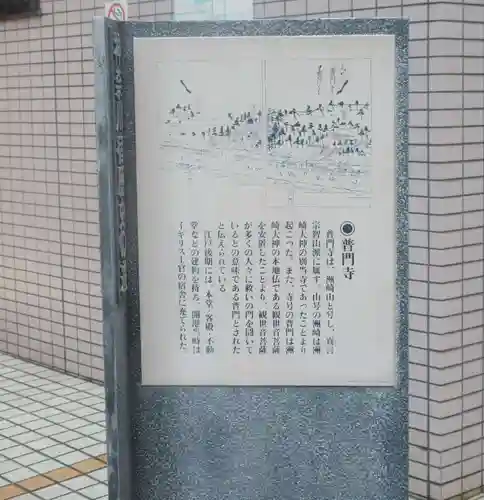 ●普門寺
普門寺は、洲崎山と号し、真言
宗智山派に属す。山号の洲崎は洲
崎大神の別当寺であったことより
起こった。また、寺号の普門は洲
崎大神の本地仏である観世音菩薩
を安置したことより、観世音菩薩
が多くの人々に救いの門を開いて
いるとの意味である普門とされた
と伝えられている
江戸後期には、本堂・客殿・不動
堂などの建物を持ち、開港当時は
イギリス士官の宿舎に充てられた。